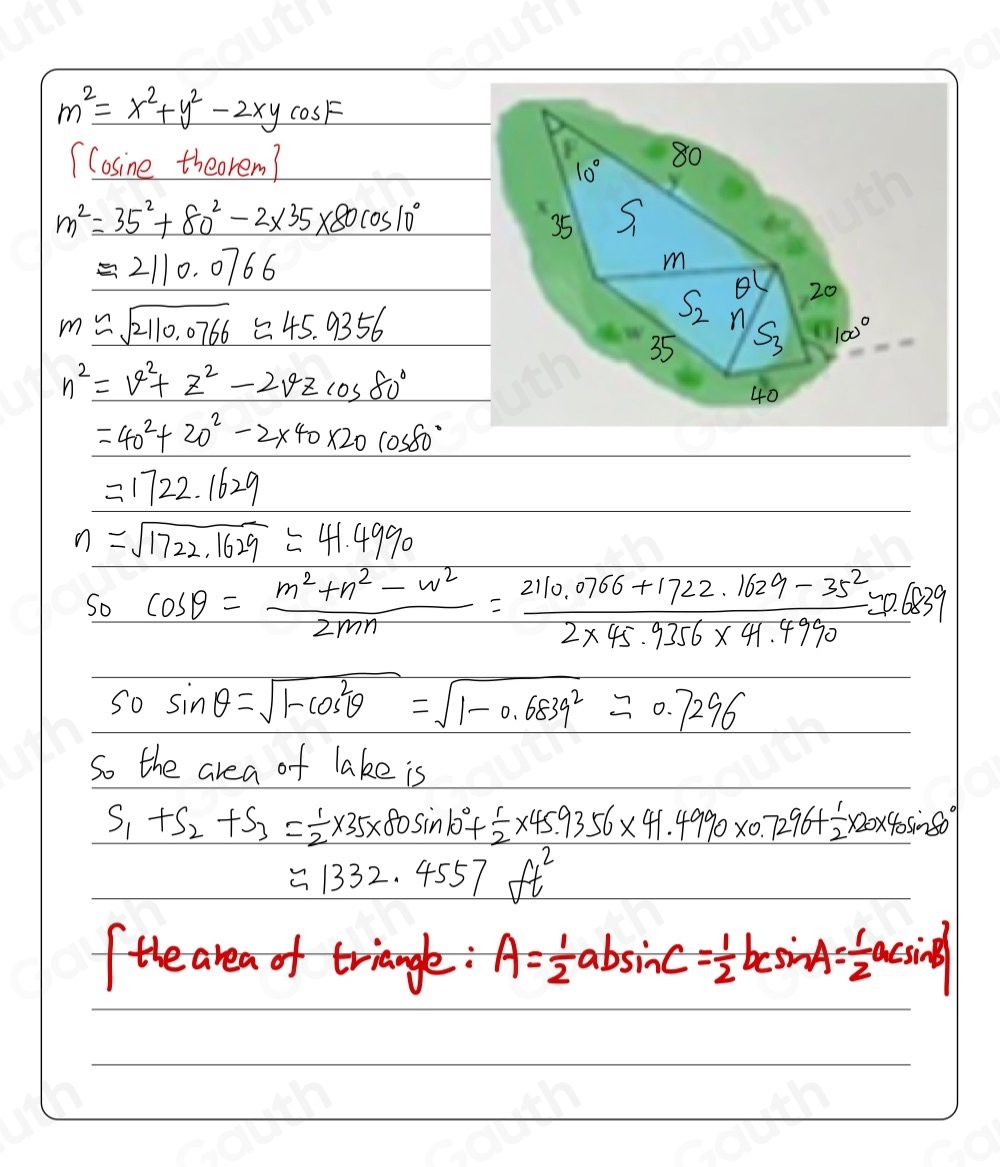 m² = x² + y² - 2xy cos F
[Cosine theorem]
m² = 35² + 80² - 2×35×80 cos 10°
≈ 2110.0766
m ≈ √2110.0766 ≈ 45.9356
n² = v² + z² - 2vz cos 80°
= 40² + 20² - 2×40×20 cos 80°
= 1722.1629
n = √1722.1629 ≈ 41.4990
so cosθ = (m² + n² - w²)/(2mn) = (2110.0766 + 1722.1629 - 35²)/(2×45.9356×41.4990) ≈ 0.6839
so sinθ = √1-cos²θ = √1-0.6839² ≈ 0.7296
So the area of lake is
S₁ + S₂ + S₃ = ½×35×80 sin 10° + ½×45.9356×41.4990×0.7296 + ½×20×40 sin 80°
≈ 1332.4557 ft²
[the area of triangle: A = ½ ab sin C = ½ bc sin A = ½ ac sin B]
F
10°
80
y
x
35
S₁
m
θ
20
S₂
n
S₃
100°
w
35
40
Gauth